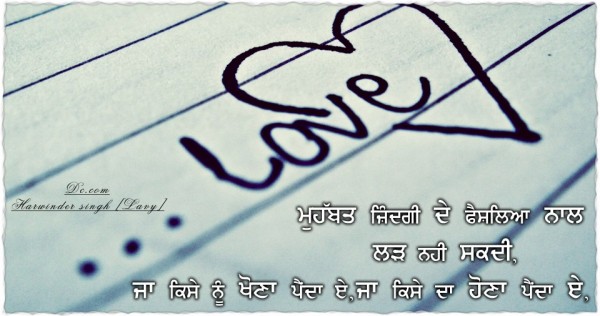 Love
...
Dc.com
Harwinder singh [Lavy]
ਮੁਹੱਬਤ ਜ਼ਿੰਦਗੀ ਦੇ ਫੈਸ਼ਲਿਆ ਨਾਲ
ਲੜ ਨਹੀ ਸਕਦੀ,
ਜਾ ਕਿਸੇ ਨੂੰ ਖੋਣਾ ਪੈਂਦਾ ਏ,ਜਾ ਕਿਸੇ ਦਾ ਹੋਣਾ ਪੈਂਦਾ ਏ,